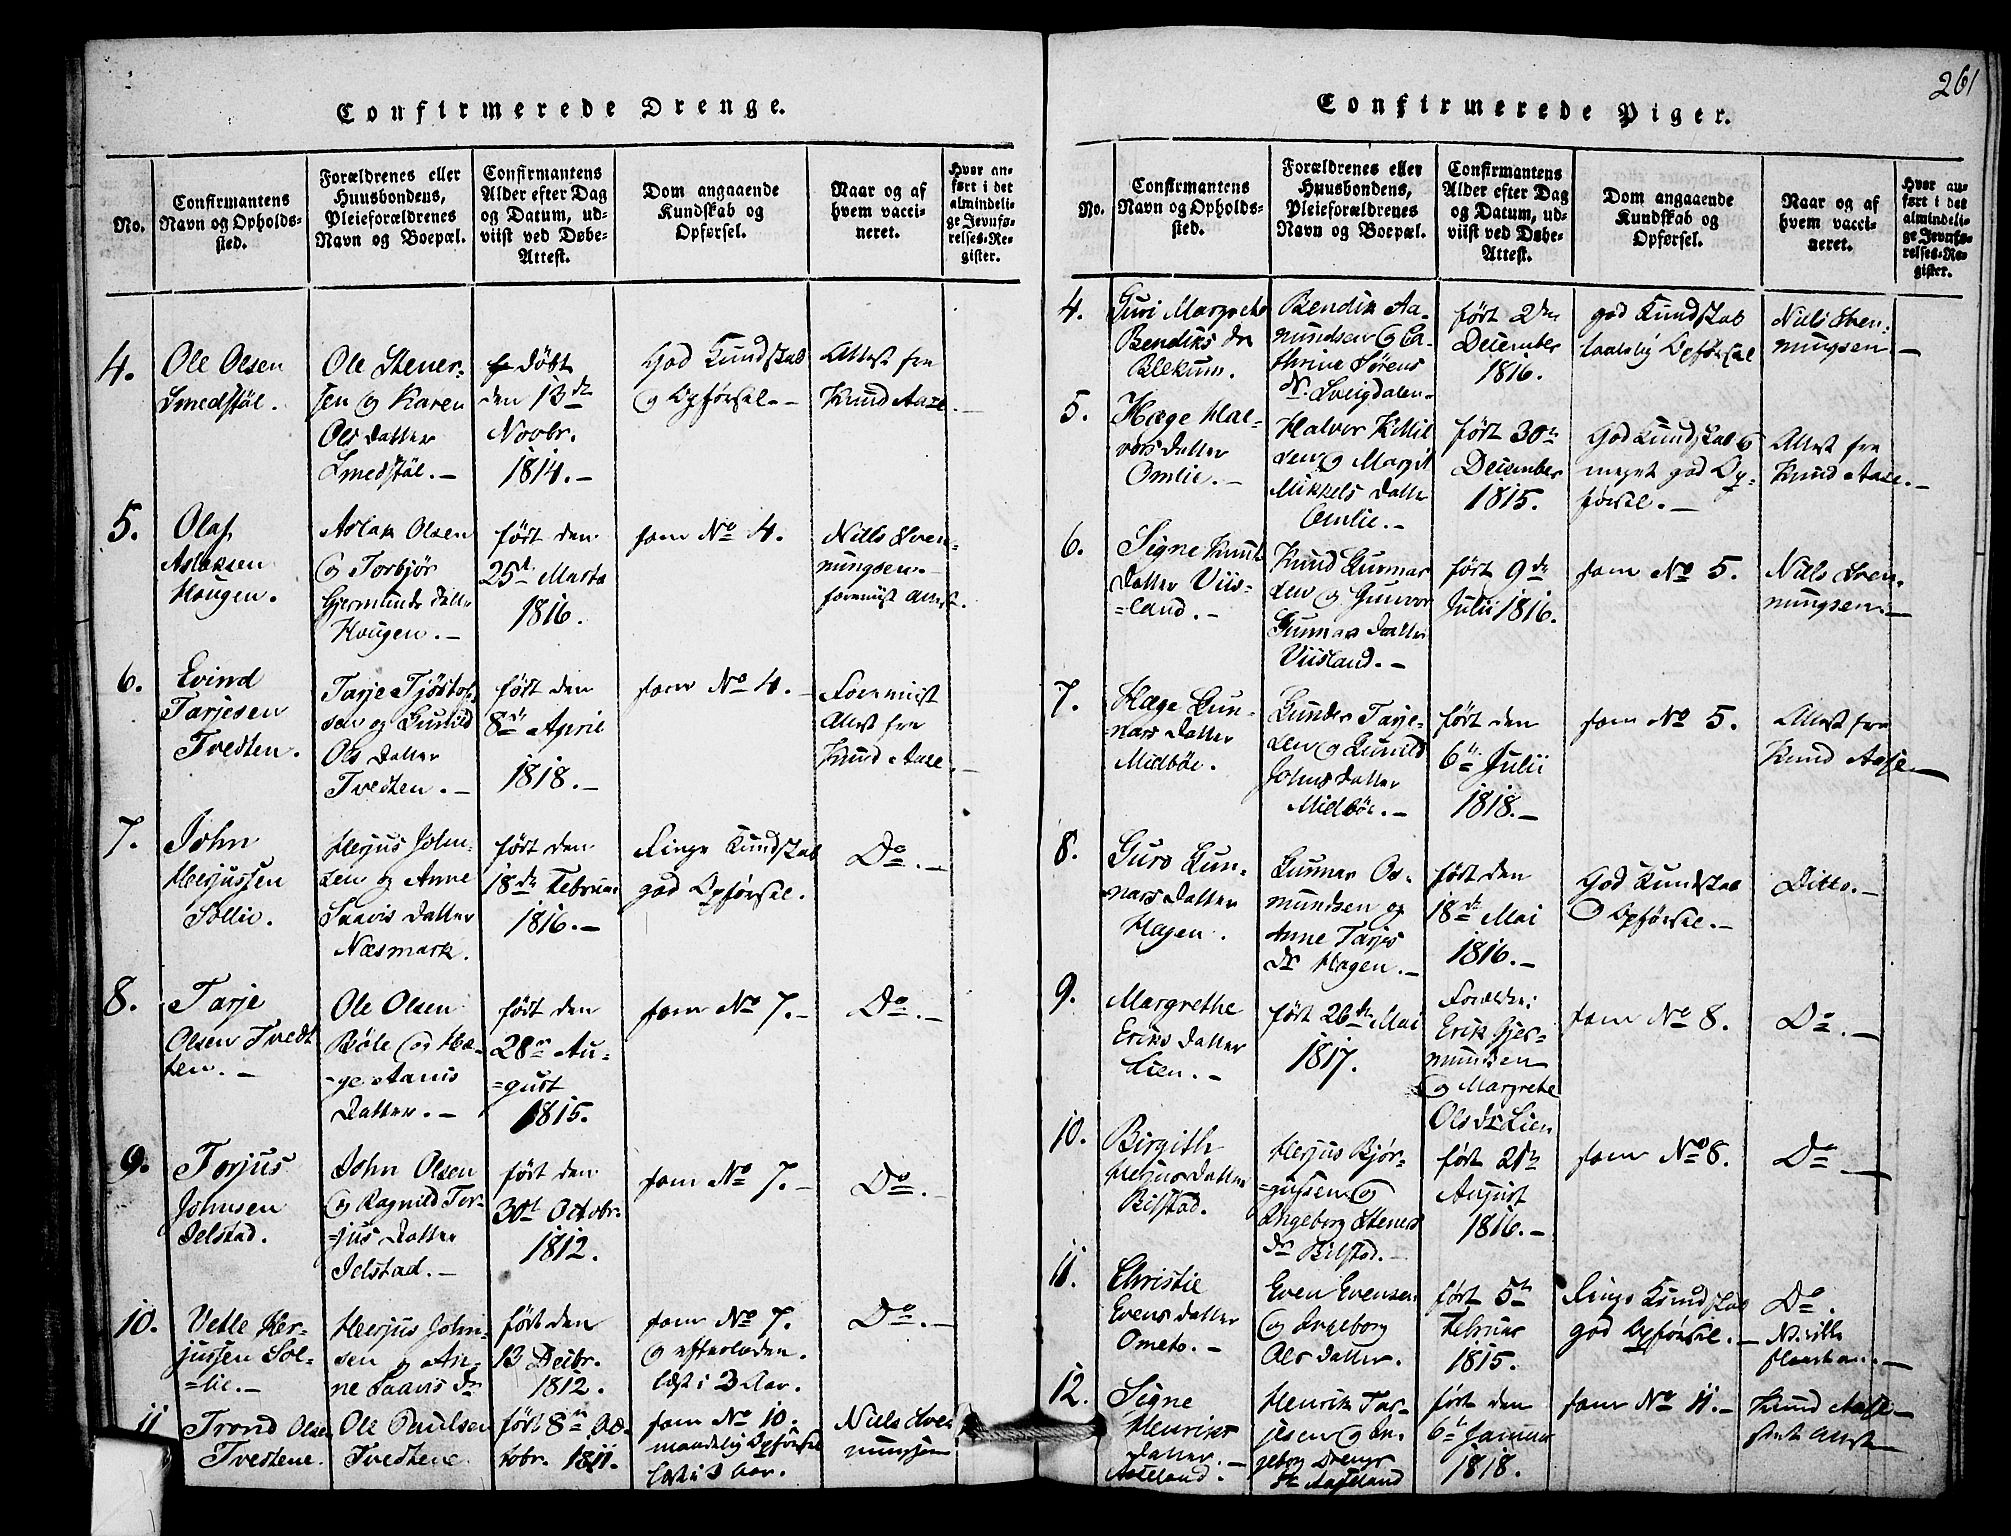 261
Confirmerede Drenge.
No.
Confirmantens
Navn og Opholds-
sted.
Forældrenes eller
Huusbondens,
Pleieforældrenes
Navn og Boepæl.
Confirmantens
Alder efter Dag
og Datum, ud-
viist ved Døbe-
Attest.
Dom angaaende
Kundskab og
Opførsel.
Naar og af
hvem vacci-
neret.
Hvor an-
ført i det
almindeli-
ge Jevnfø-
relses-Re-
gister.
4.
Ole Olsen
Smedstöl.
Ole Stener-
sen og Karen
Ols Datter
Smedstöl.
döbt
den 13de
Novbr.
1814.
God Kundskab
og Opførsel.
Attest fra
Knud Aase.
5.
Olaf
Aslaksen
Hougen.
Aslak Olsen
og Torbjör
Gjermunds Datter
Hougen.
født den
25de Marts
1816.
som No 4.
Niels Sven-
nungsen
foreviist Attest.
6.
Evind
Tarjesen
Tvedten.
Tarje Tjöstols
sen og Gunild
Ols Datter
Tvedten.
født den
8de April
1818.
som No 4.
Foreviist
Attest fra
Knud Aase.
7.
John
Herjussen
Sollie.
Herjus John-
sen og Anne
Saavis Datter
Næsmark.
født den
18de Februar
1816.
Ringe Kundskab
god Opførsel.
Do.
8.
Tarje
Olsen Tvedt
ten.
Ole Olsen
Böle og Hæ-
ge Aanis
Datter.
født den
28de Au-
gust
1815.
som No 7.
Do.
9.
Torjus
Johnsen
Jelstad.
John Olsen
og Ragnild Tor-
jus Datter
Jelstad.
født den
30te Octobr.
1812.
som No 7.
Do.
10.
Vetle Her-
jussen Sol-
lie.
Herjus John-
sen og An-
ne Saavis Dr
født den
13 Decbr.
1812.
som No 7.
og efterladen.
læst i 3 Aar.
Do.
11
Trond Olsen
Tvedtene.
Ole Paulsen
Tvedtene.
født 8de Oc-
tobr. 1811.
som No 10.
maadelig Opførsel
læst i 3 Aar.
Niels Sven
nungsen
Confirmerede Piger.
No.
Confirmantens
Navn og Opholds-
sted.
Forældrenes eller
Huusbondens,
Pleieforældrenes
Navn og Boepæl.
Confirmantens
Alder efter Dag
og Datum, ud-
viist ved Døbe-
Attest.
Dom angaaende
Kundskab og
Opførsel.
Naar og af
hvem vacci-
neret.
Hvor an-
ført i det
almindeli-
ge Jevnfø-
relses-Re-
gister.
4.
Guri Margrete
Bendiks Dr
Blekum.
Bendik Aa-
mundsen og Ca-
thrine Sørens
Dr. Sveigdalen.
født 2den
December
1816.
god Kundskab
taalelig Opførsel
Niels Sven-
nungsen
5.
Hæge Hal-
vors Datter
Omlie.
Halvor Kittil
sen og Margit
Mikkels Datter
Omlie.
født 30te
December
1815.
God Kundskab og
meget god Op-
førsel.
Attest fra
Knud Aase.
6.
Signe Knuds
Datter Viis-
land.
Knud Gunnar
sen og Gunvor
Gunnars Datter
Viisland.
født 9de
Julii 1816.
som No 5.
Niels Sven-
nungsen
7.
Hæge Gun-
nars Datter
Midböe.
Gunder Tarje-
sen og Gunild
Johns Datter
Midböe.
født den
6te Julii
1818.
som No 5.
Attest fra
Knud Aase.
8.
Guro Gun-
nars Datter
Hagen.
Gunnar Os-
mundsen og
Anne Tarjes
Dr Hagen.
født den
18de Mai
1816.
God Kundskab
og Opførsel.
Ditto.
9.
Margrethe
Eriks Datter
Lien.
født 26de Mai
1817.
Forældre:
Erik Gjer-
mundsen
og Margrete
Ols Dr Lien
som No 8.
Do.
10.
Birgith
Herjus Datter
Bilstad.
Herjus Bjør-
gufsen og
Ingeborg Steners
Dr Bilstad.
født 21de
August
1816.
som No 8.
Do
11.
Christie
Evens Datter
Even Evensen
og Ingeborg
Ols Datter.
født 5te
Februar
1815.
Ringe Kundskab
god Opførsel.
Do.
12.
Signe
Henriks
Datter.
Aaseland.
Henrik Tar-
jesen og In-
geborg Drengs
Dr Aaseland
født den
6te Januar
1818.
som No 11.
Knud Aase